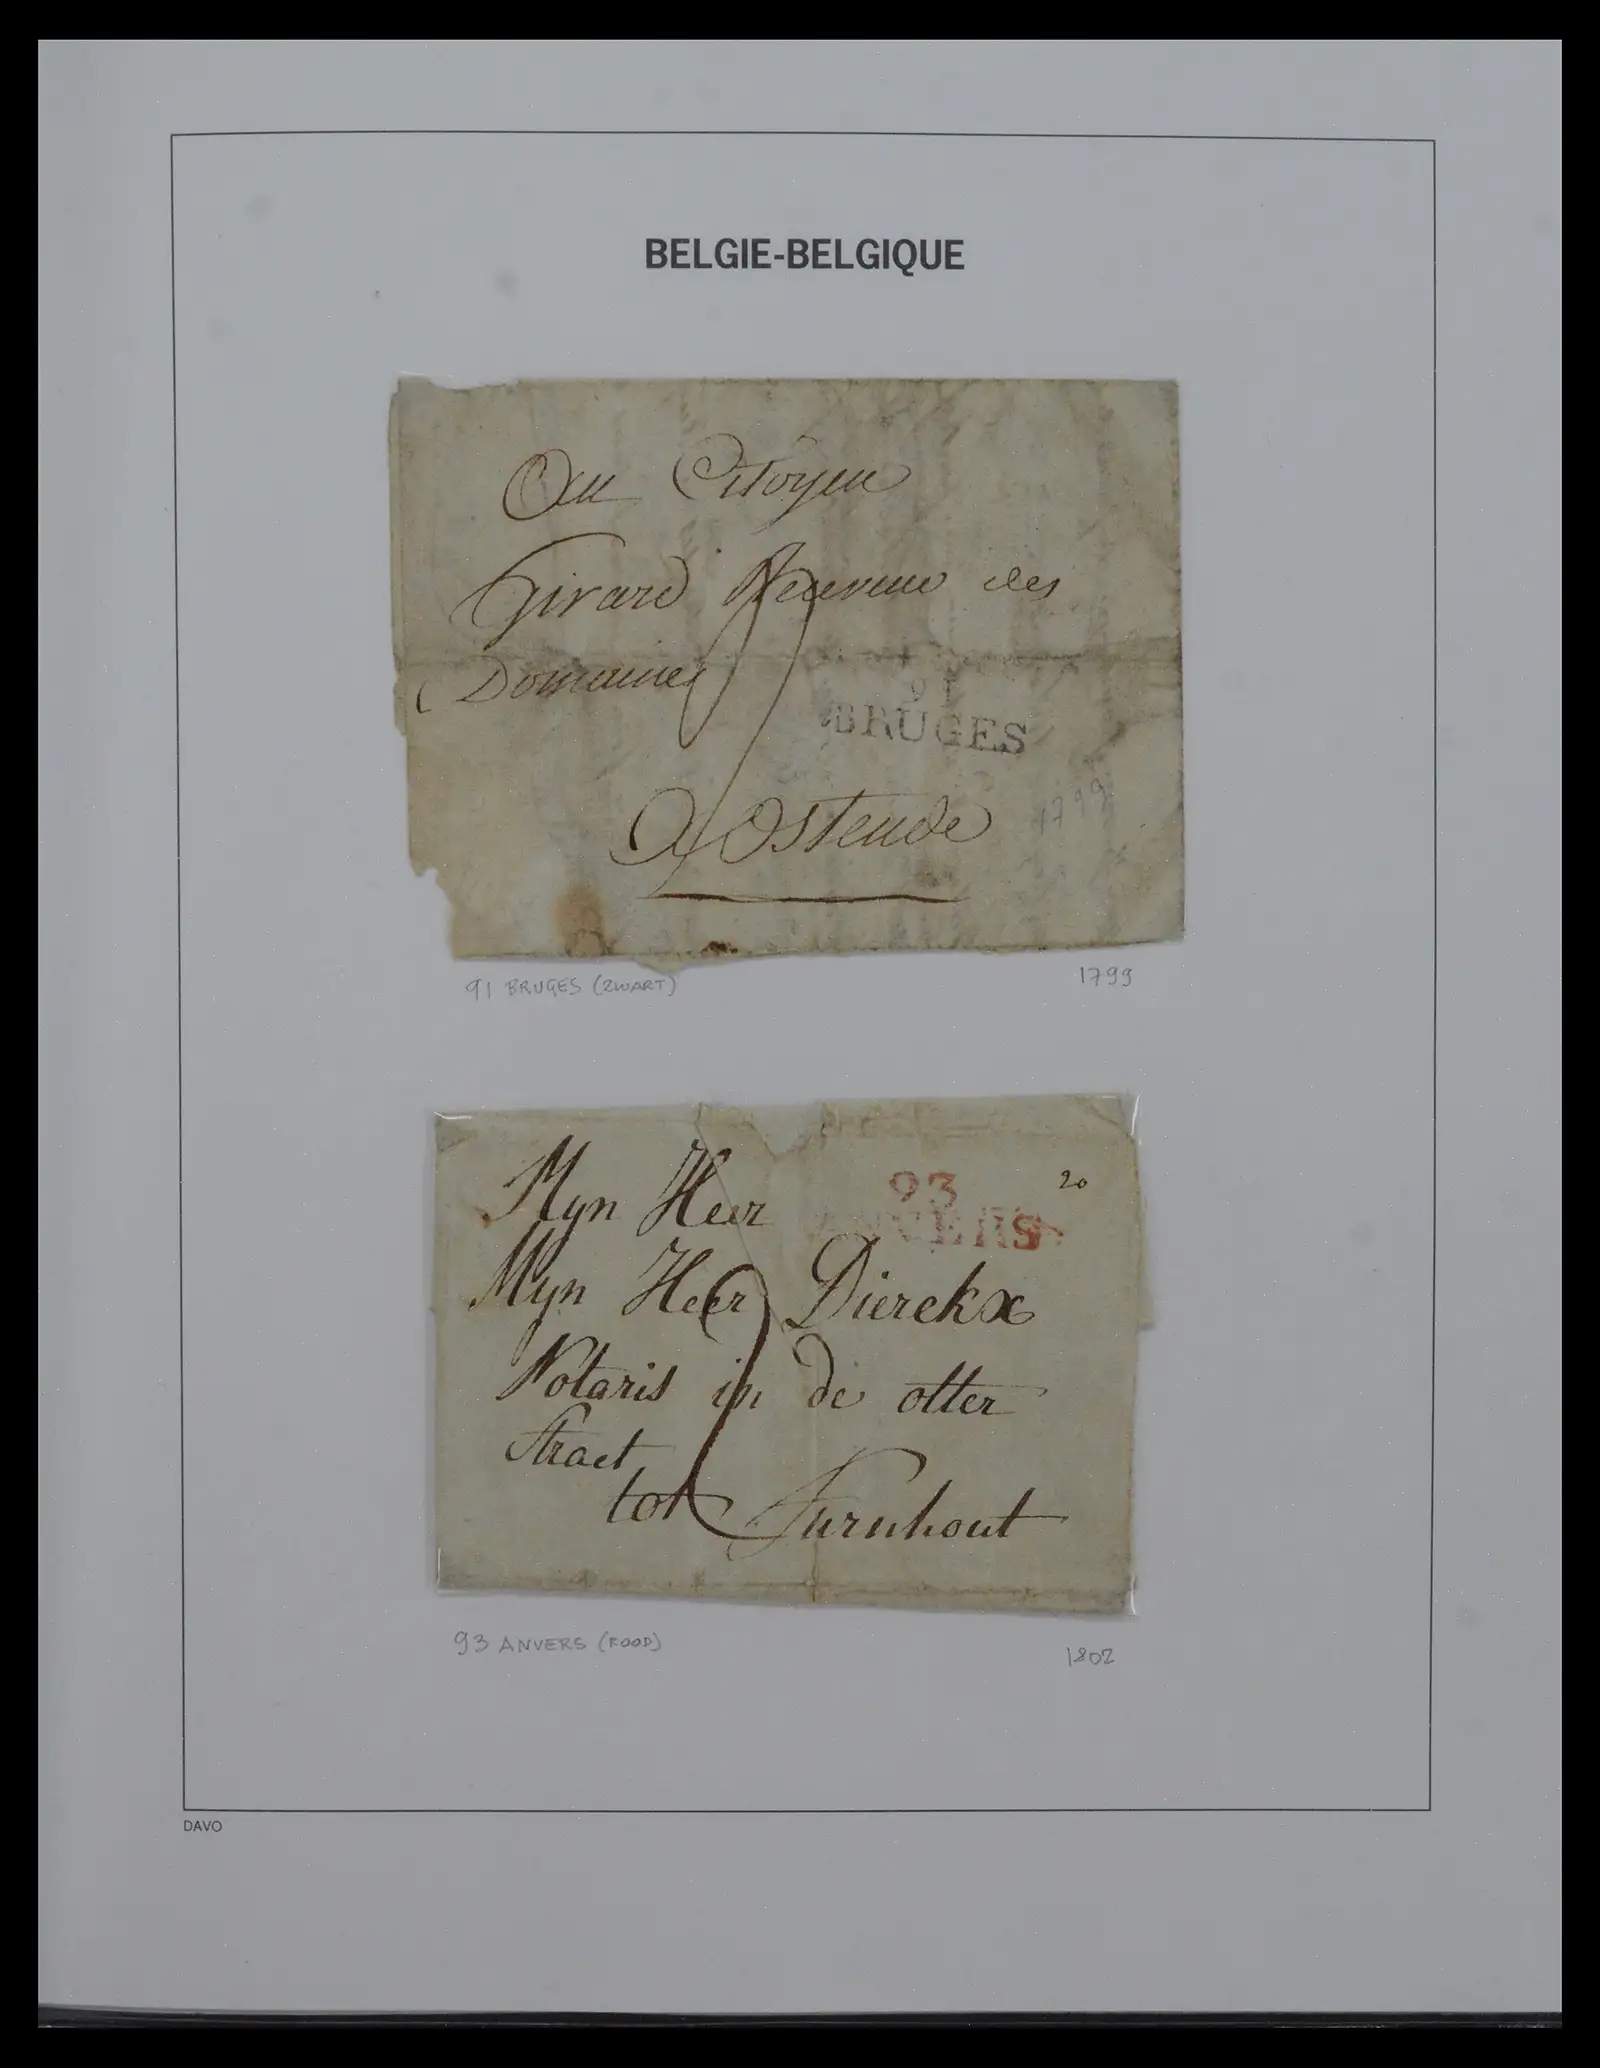 BELGIE-BELGIQUE
Au Citoyen
Girard Receveur des
Domaines
91
BRUGES
1799
A Ostende
91 BRUGES (ZWART)
1799
Myn Heer
93
20
ANVERS
Myn Heer Dierckx
Notaris in de otter
straet
tot Turnhout
93 ANVERS (ROOD)
1802
DAVO